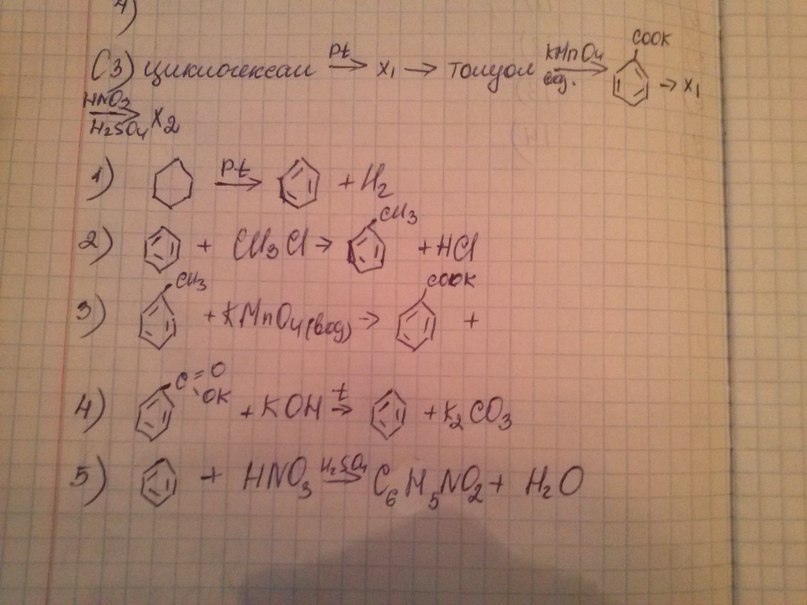 4)
C3) циклогексан Pt → X₁ → толуол KMnO₄ вод. → COOK → X₁
HNO₃ H₂SO₄ → X₂
1) Pt → + H₂
2) + CH₃Cl → CH₃ + HCl
3) CH₃ + KMnO₄(вод) → COOK +
4) C=O OK + KOH t → + K₂CO₃
5) + HNO₃ H₂SO₄ → C₆H₅NO₂ + H₂O